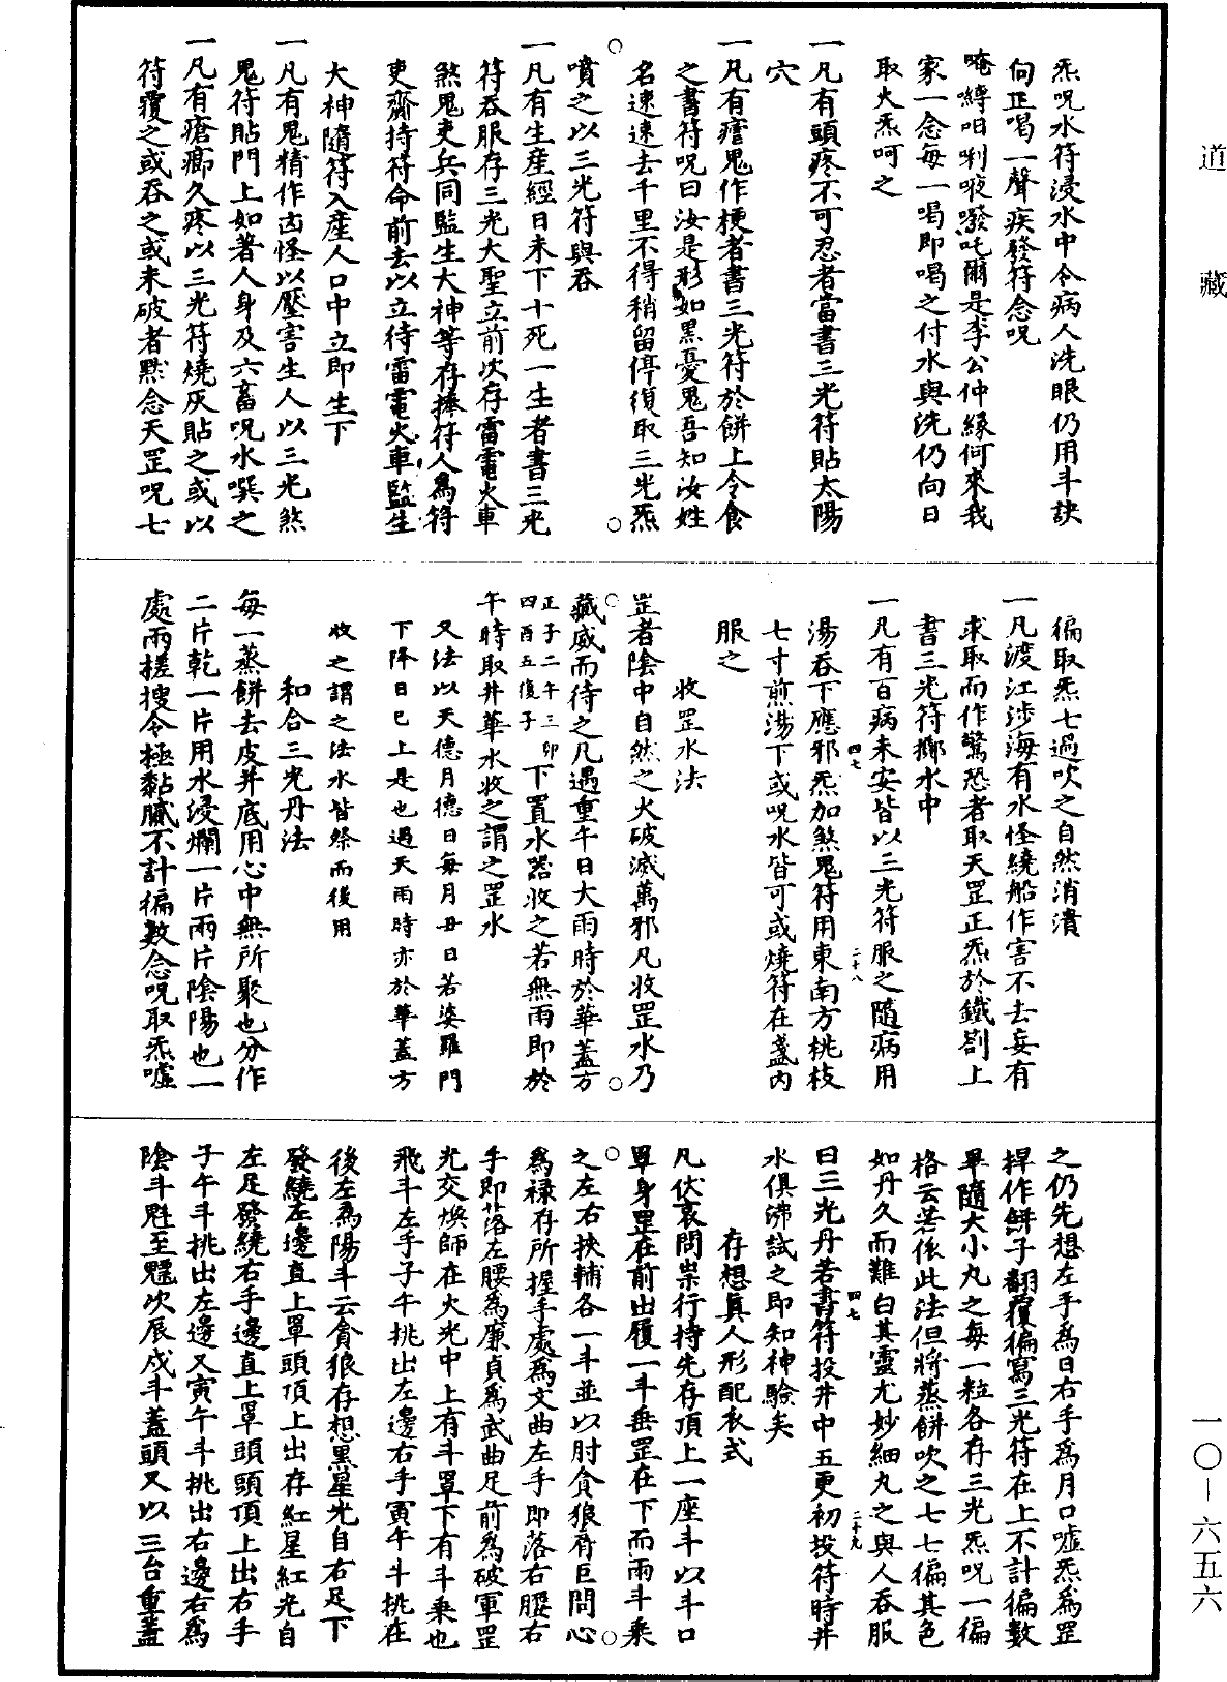 道藏
炁呪水符浸水中令病人洗眼仍用斗訣
向正喝一聲疾發符念呪
唵縛咱唎㗒㘄吒爾是李公仲緣何來我
家一念每一喝即喝之付水與洗仍向日
取火炁呵之
一凡有頭疼不可忍者當書三光符貼太陽
穴
一凡有瘧鬼作梗者書三光符於餅上令食
之書符呪曰汝是形如黑憂鬼吾知汝姓
名速速去千里不得稍留停復取三光炁
噴之以三光符與吞
一凡有生産經日未下十死一生者書三光
符吞服存三光大聖立前次存雷電火車
煞鬼吏兵同監生大神等存捧符人爲符
吏齋持符命前去以立待雷電火車監生
大神隨符入産人口中立即生下
一凡有鬼精作凶怪以壓害生人以三光煞
鬼符貼門上如著人身及六畜呪水噀之
一凡有瘡癤久疼以三光符燒灰貼之或以
符覆之或吞之或未破者默念天罡呪七
徧取炁七過吹之自然消潰
一凡渡江涉海有水怪繞船作害不去妄有
求取而作驚恐者取天罡正炁於鐵劄上
書三光符擲水中
一凡有百病未安皆以三光符服之隨病用
湯吞下應邪炁加煞鬼符用東南方桃枝
四七
二十八
七寸煎湯下或呪水皆可或燒符在盞内
服之
收罡水法
罡者陰中自然之火破滅萬邪凡收罡水乃
藏威而待之凡遇重午日大雨時於華蓋方
正子二午三卯
四酉五復子
下置水器收之若無雨即於
午時取井華水收之謂之罡水
又法以天德月德日每月丑日若婆羅門
下降日巳上是也遇天雨時亦於華蓋方
收之謂之法水皆祭而後用
和合三光丹法
每一蒸餅去皮并底用心中無所聚也分作
二片乾一片用水浸爛一片兩片陰陽也一
處兩搓搜令極黏膩不計徧數念呪取炁噓
之仍先想左手爲日右手爲月口噓炁爲罡
捍作餅子翻覆徧寫三光符在上不計徧數
畢隨大小丸之每一粒各存三光炁呪一徧
格云若依此法但將蒸餅吹之七七徧其色
如丹久而難白其靈尤妙細丸之與人吞服
四七
二十九
曰三光丹若書符投井中五更初投符時井
水俱沸試之即知神驗矣
存想眞人形配衣式
凡伏哀問祟行持先存頂上一座斗以斗口
罩身罡在前出履一斗垂罡在下而兩斗乘
之左右挾輔各一斗並以肘貪狼脣巨門心
爲禄存所握手處爲文曲左手即落右腰右
手即落左腰爲廉貞爲武曲足前爲破軍罡
光交煥師在火光中上有斗罩下有斗乘也
飛斗左手子午挑出左邊右手寅午斗挑在
後左爲陽斗云貪狼存想黒星光自右足下
發繞左邊直上罩頭頂上出存紅星紅光自
左足發繞右手邊直上罩頭頭頂上出右手
子午斗挑出左邊又寅午斗挑出右邊右爲
陰斗魁至魓次辰戍斗蓋頭又以三台重蓋
一〇—六五六